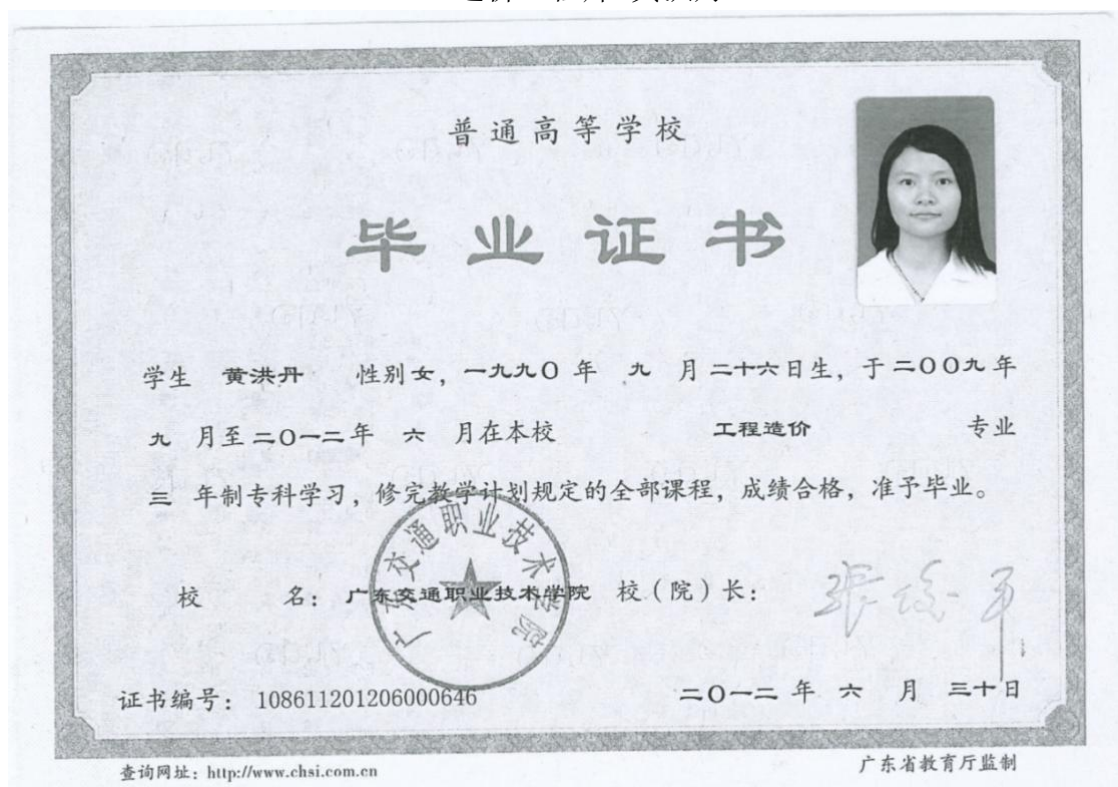 普通高等学校
毕业证书
学生 黄洪丹 性别 女，一九九〇 年 九 月 二十六日生，于 二〇〇九 年
九 月至 二〇一二 年 六 月在本校 工程造价 专业
三 年制专科学习，修完教学计划规定的全部课程，成绩合格，准予毕业。
广东交通职业技术学院
校 名：广东交通职业技术学院 校（院）长：
证书编号：108611201206000646 二〇一二 年 六 月 三十日
查询网址：http://www.chsi.com.cn 广东省教育厅监制